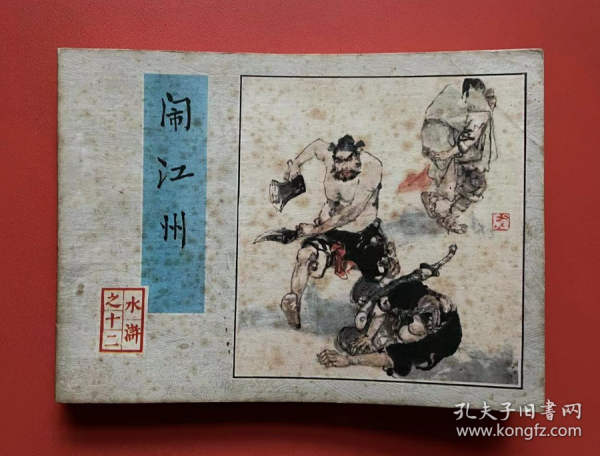 闹江州
水浒
之十二
孔夫子旧書网
www.kongfz.com